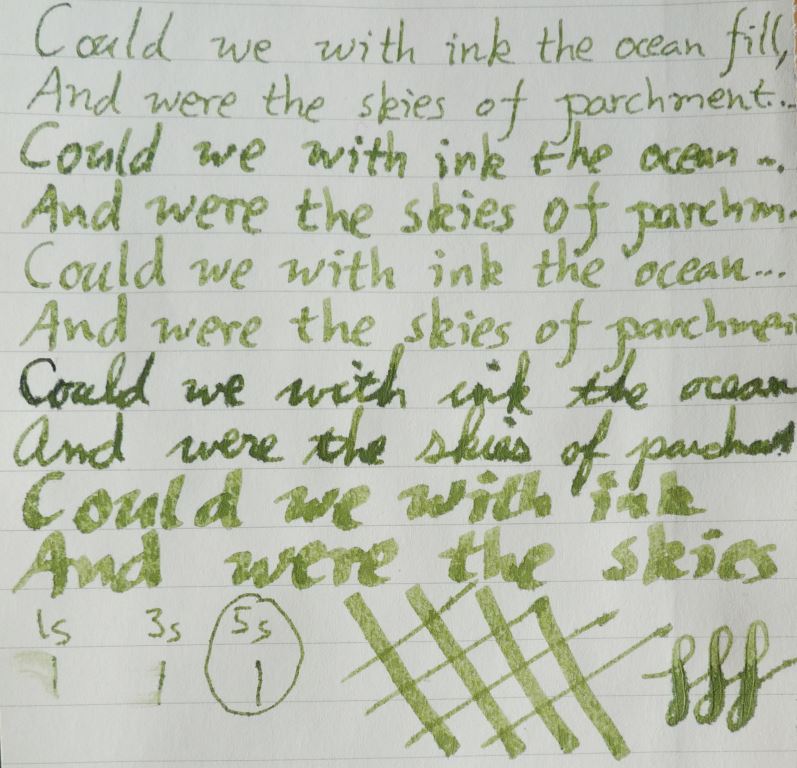 Could we with ink the ocean fill,
And were the skies of parchment...
Could we with ink the ocean...
And were the skies of parchm.
Could we with ink the ocean...
And were the skies of parchmen
Could we with ink the ocean
And were the skies of parchment
Could we with ink
And were the skies
1s 3s 5s
1 1 1
fff